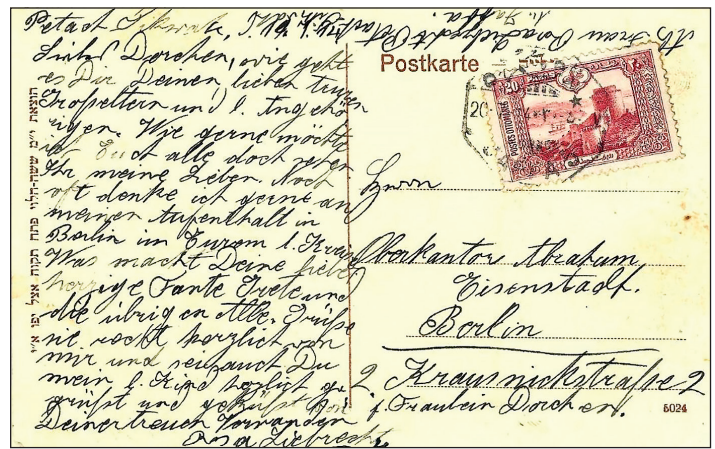 Petach Tikwah,
Liebes Dorchen, wie geht
es Dir Deinen lieben treuen
Großeltern und l. Angehö
rigen. Wie gerne möchte
ich Euch alle doch sehen
Ihr meine Lieben. Noch
oft denke ich gerne an
meinen Aufenthalt in
Berlin im Eurem l. Kreise
Was macht Deine liebe
herzige Tante Grete und
die übrigen Alle. Grüße
sie recht herzlich von
mir und sei auch Du
mein l. Kind herzlich ge
grüßt und geküßt von
Deiner treuen
Rosa Liebrecht
Abs. Frau Rosa Liebrecht Pet
b. Jaffa.
Postkarte
20
POSTES OTTOMANES
Herrn
Oberkantor Abraham
Eisenstadt.
Berlin
2. Krausnickstraße 2
f. Fraulein Dorchen.
5024
הוצאת י"מ ששה-הלוי פתח תקוה אצל יפו א"י